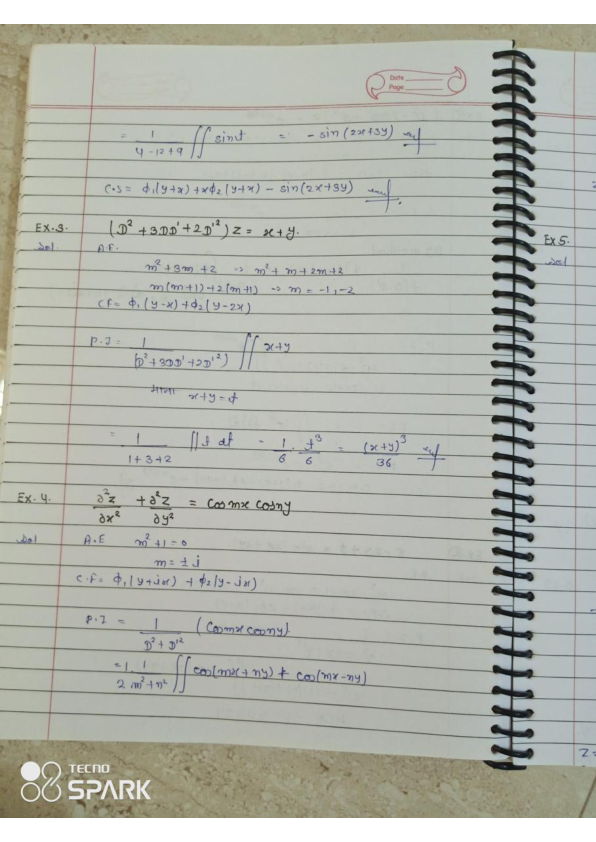 Date
Page
= 1/(4-12+9) ∬ sint = - sin(2x+3y)
C.S = ϕ₁(y+x)+xϕ₂(y+x) - sin(2x+3y)
Ex.3. (D² + 3DD' + 2D'²) z = x+y.
Sol. A.E.
m² + 3m + 2 ⇒ m² + m + 2m + 2
m(m+1) + 2(m+1) ⇒ m = -1, -2
CF = ϕ₁(y-x) + ϕ₂(y-2x)
P.I = 1/(D²+3DD'+2D'²) ∬ x+y
माना x+y = t
= 1/(1+3+2) ∬ t dt = 1/6 . t³/6 = (x+y)³/36
Ex. 4. ∂²z/∂x² + ∂²z/∂y² = cosmx cosny
Sol A.E m²+1 = 0
m = ± i
C.F = ϕ₁(y+ix) + ϕ₂(y-ix)
P.I = 1/(D²+D'²) (cosmx cosny)
= 1/2 1/(m²+n²) ∬ cos(mx+ny) + cos(mx-ny)
Ex 5.
Sol
z=
TECNO
SPARK